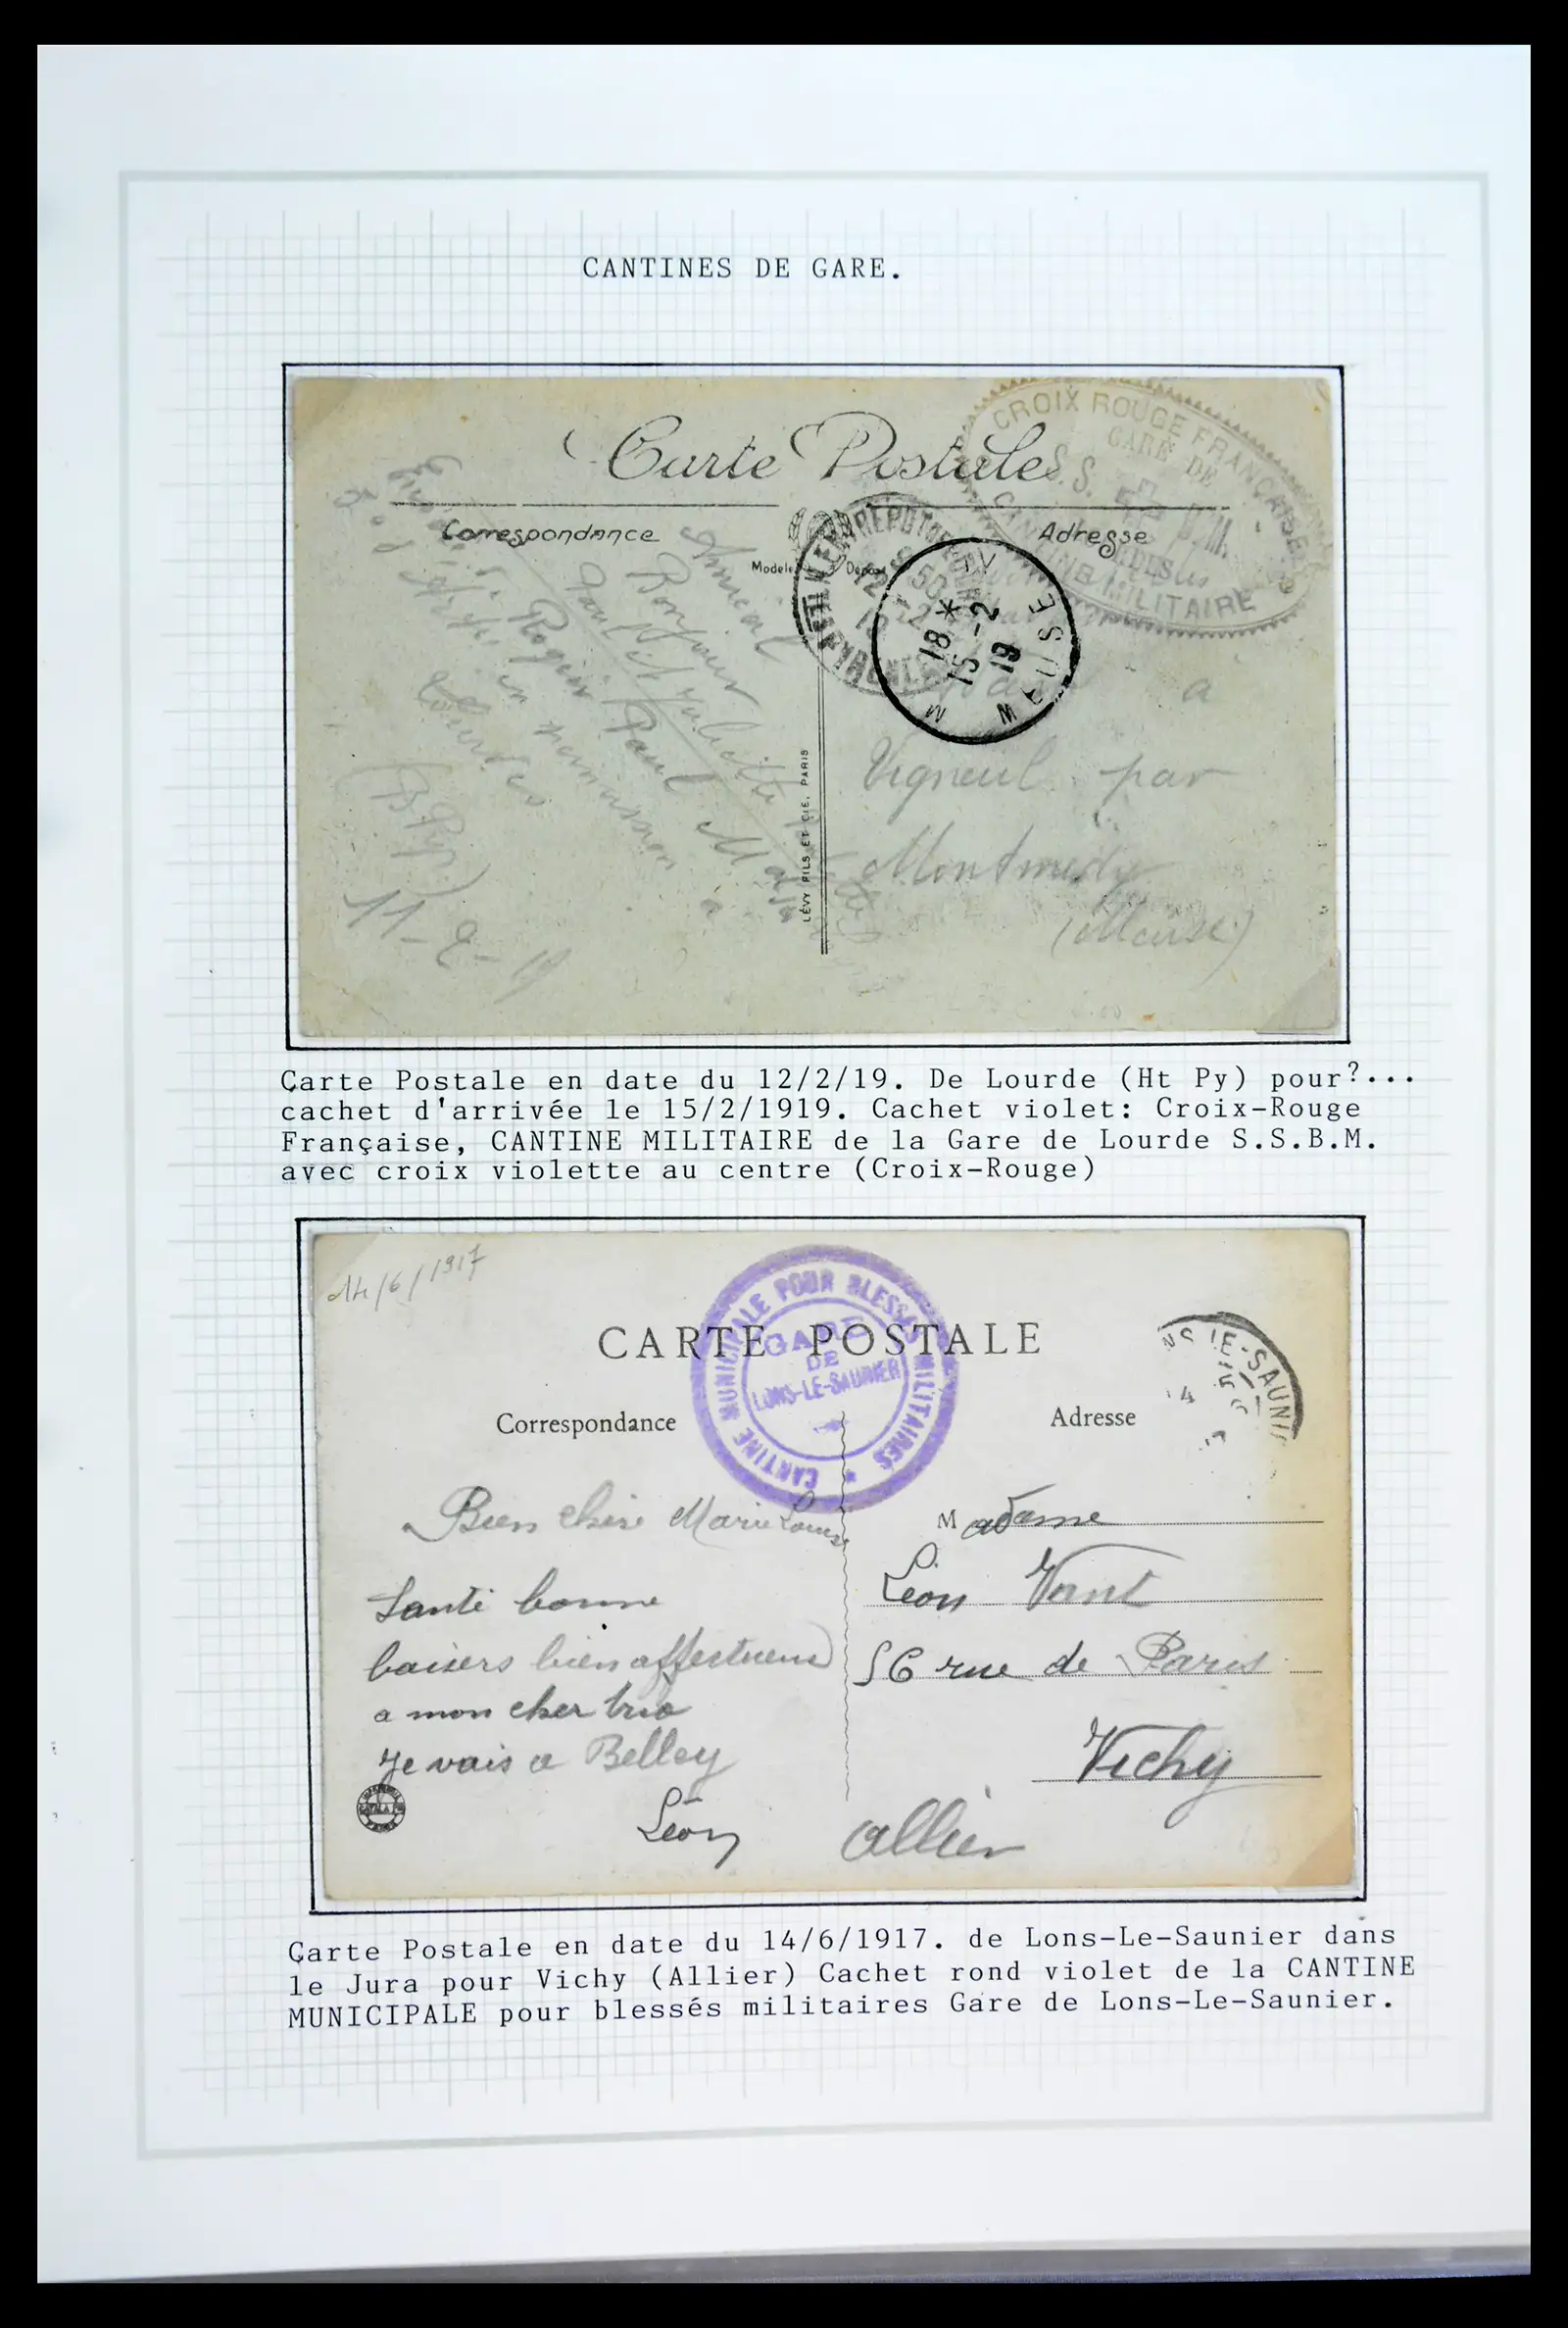 CANTINES DE GARE.
Carte Postale
CROIX ROUGE FRANÇAISE
GARE DE
S.S. B.M.
CANTINE MILITAIRE
Correspondance
Adresse
Modèle Déposé
18 *
15 - 2
19
MEUSE
Bonjour
Roger Paul
11-2-19
à
Vigneul par
Montmédy
(Meuse)
LÉVY FILS ET CIE, PARIS
Carte Postale en date du 12/2/19. De Lourde (Ht Py) pour?...
cachet d'arrivée le 15/2/1919. Cachet violet: Croix-Rouge
Française, CANTINE MILITAIRE de la Gare de Lourde S.S.B.M.
avec croix violette au centre (Croix-Rouge)
14/6/1917
CANTINE MUNICIPALE POUR BLESSÉS MILITAIRES *
GARE
DE
LONS-LE-SAUNIER
CARTE POSTALE
NS LE-SAUNI
Correspondance
Adresse
Bien chère Marie Louise
Santé bonne
baisers bien affectueux
a mon cher trio
Je vais a Belley
Léon
Madame
Léon Vant
56 rue de Paris
Vichy
Allier
Carte Postale en date du 14/6/1917. de Lons-Le-Saunier dans
le Jura pour Vichy (Allier) Cachet rond violet de la CANTINE
MUNICIPALE pour blessés militaires Gare de Lons-Le-Saunier.